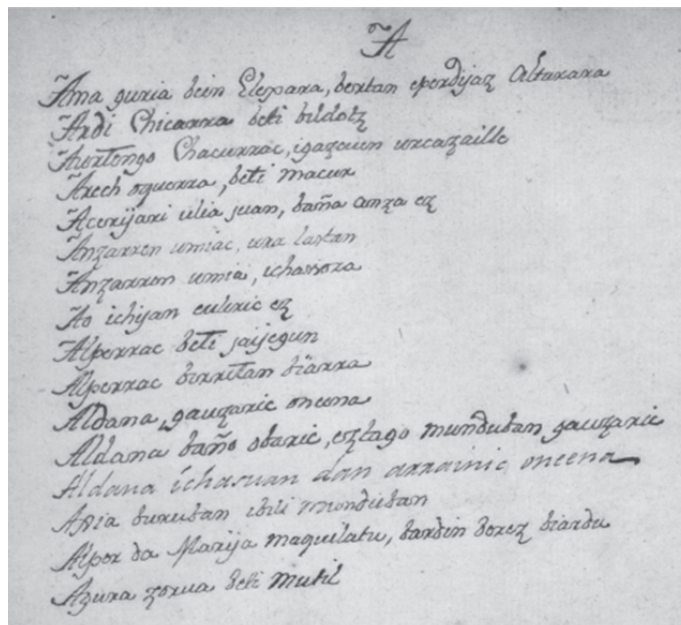 A
Ama guria bein Elexara, bertan eperdijaz Altarara
Ardi Chicarra beti bildotz
Aurtengo Chacurrac, igazcuen urcazaille
Arech oquerra, beti macur
Acerijari ulia juan, baña anza ez
Anzarren umiac, ura lastan
Anzarren umia, ichasora
Ao ichijan euliric ez
Alperrac beti jaijegun
Alperrac birritan biarra
Aldana, gauzaric oneena
Aldana baño obaric, eztago munduban gauzaric
Aldana ichasuan dan arrainic oneena
buruban ibili munduban
Alper da Marija maquilatu, bardin berez biardu
Azura zorua beti mutil